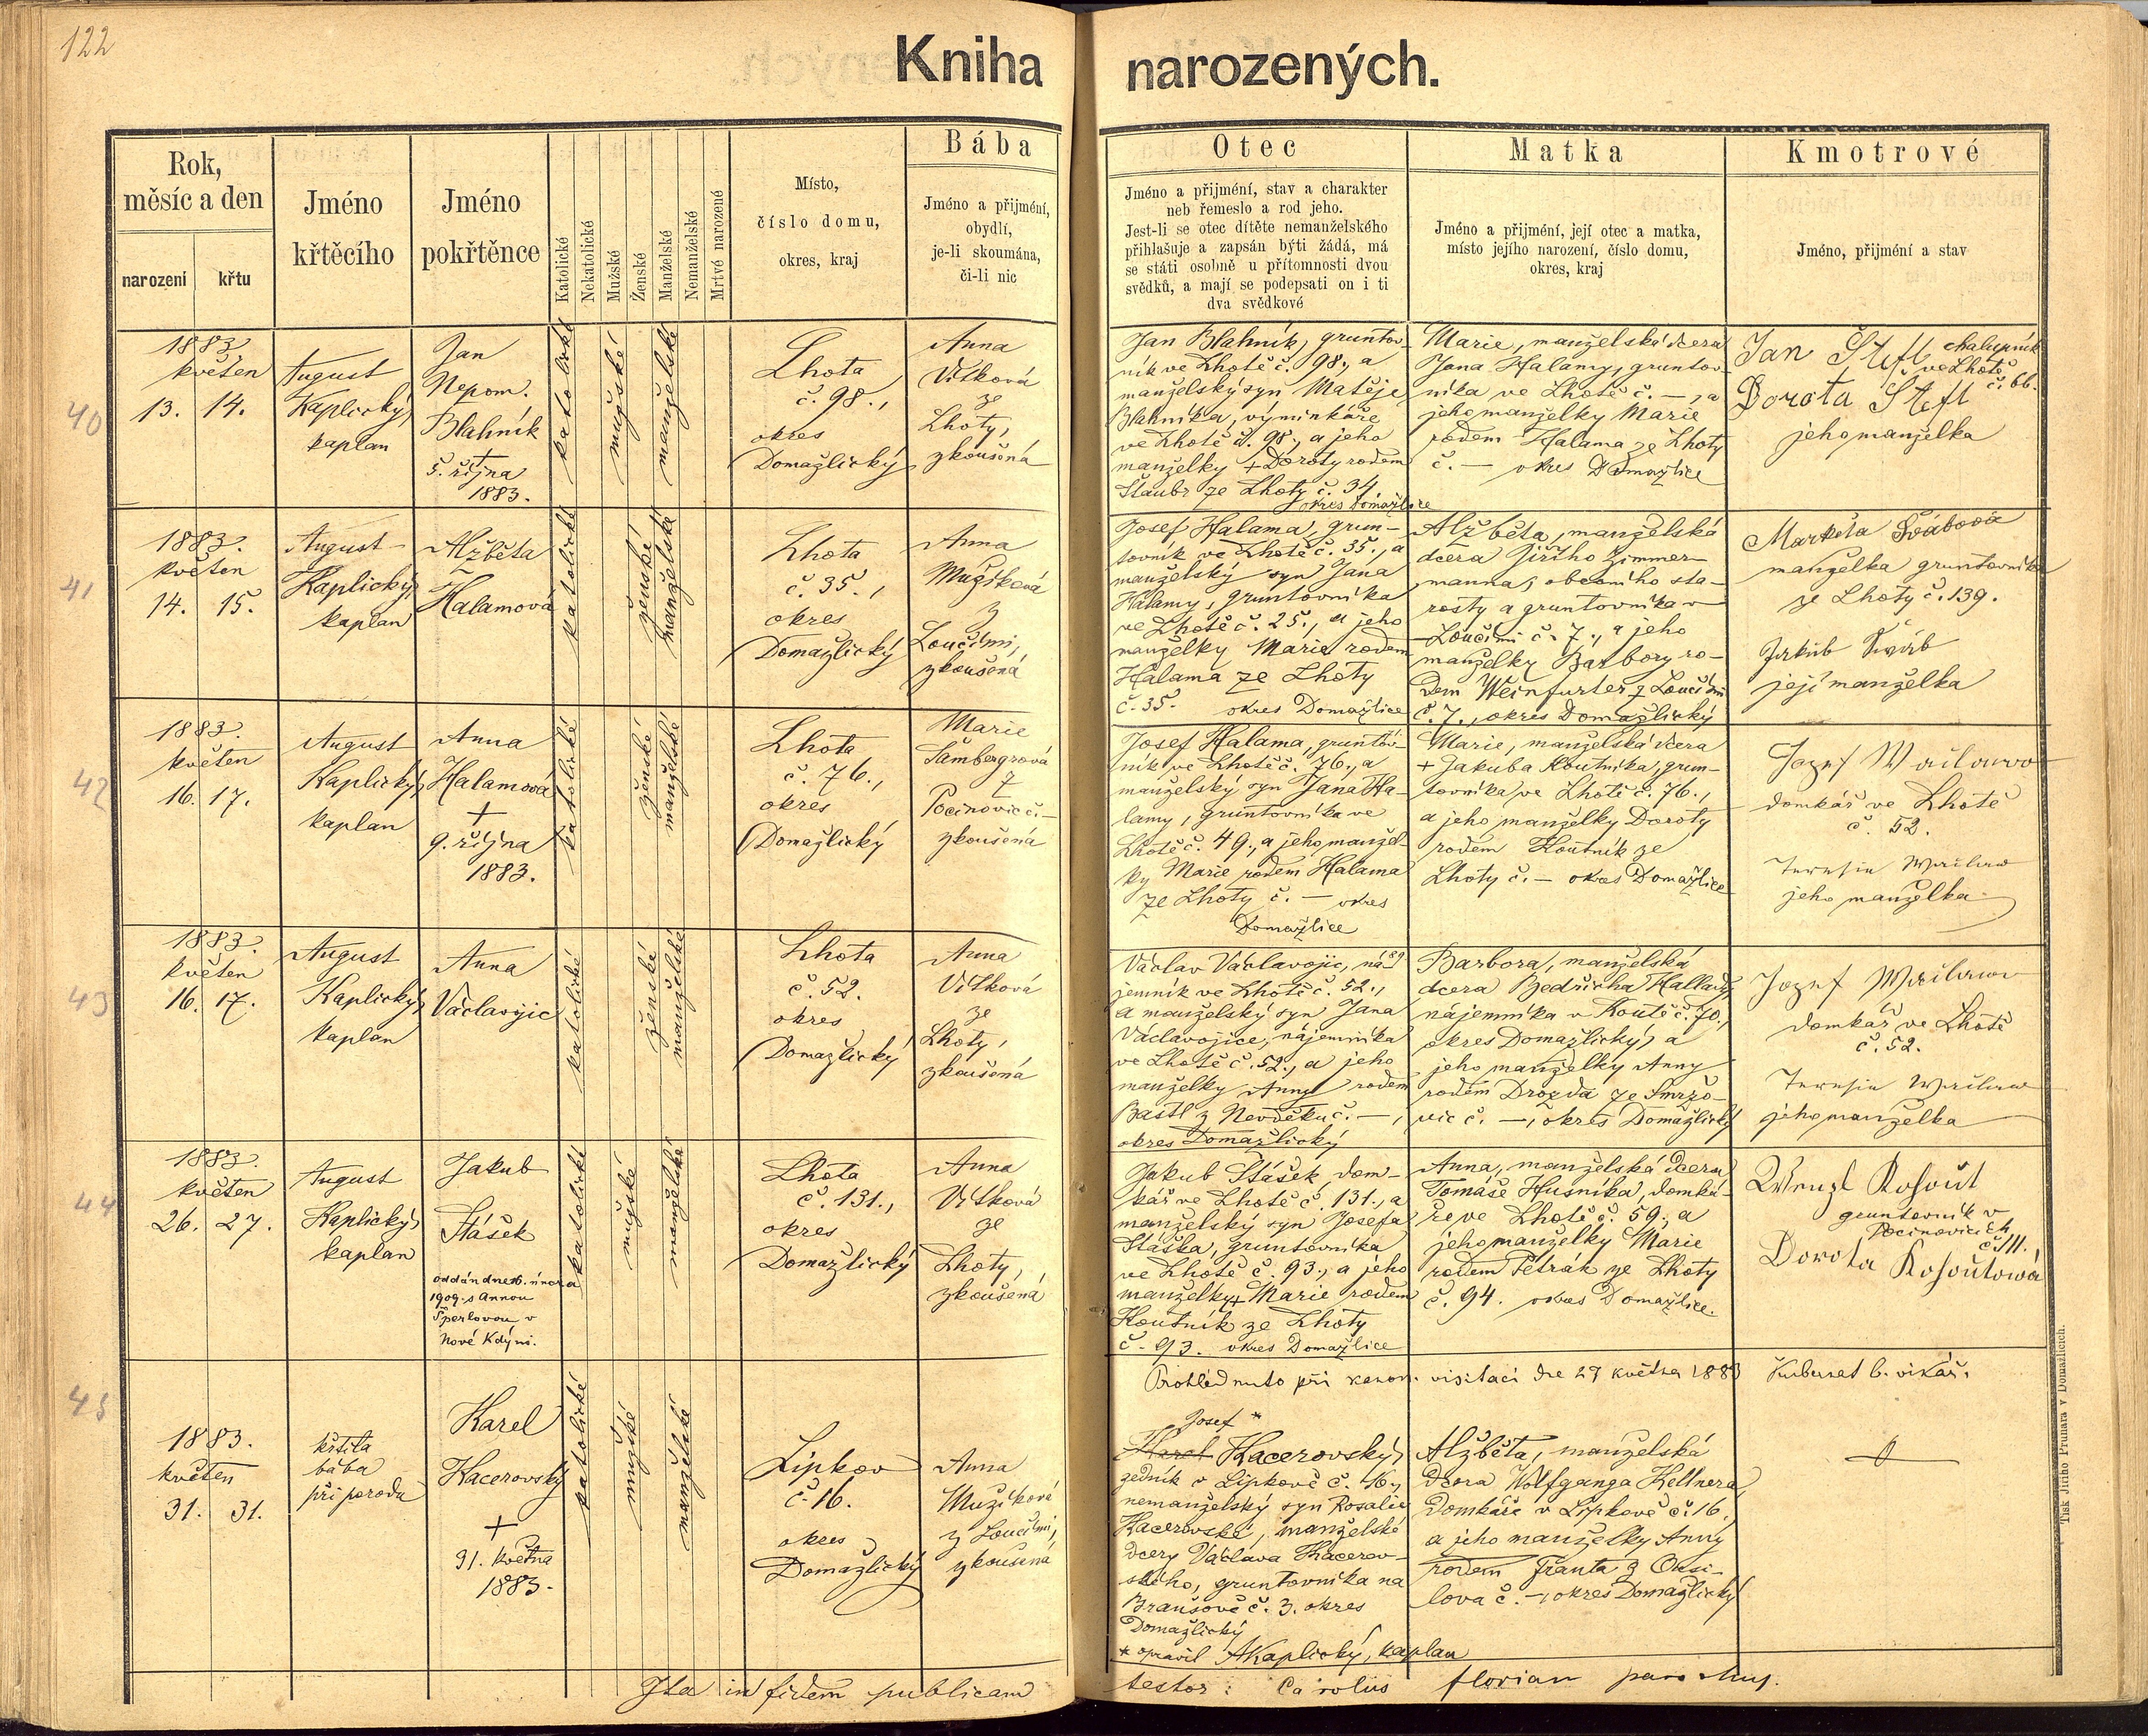 122
Kniha narozených.
Rok,
měsíc a den
narození
křtu
Jméno
křtěcího
Jméno
pokřtěnce
Katolické
Nekatolické
Mužské
Ženské
Manželské
Nemanželské
Mrtvě narozené
Místo,
číslo domu,
okres, kraj
Bába
Jméno a přijmění,
obydlí,
je-li skoumána,
či-li nic
Otec
Jméno a přijmění, stav a charakter
neb řemeslo a rod jeho.
Jest-li se otec dítěte nemanželského
přihlašuje a zapsán býti žádá, má
se státi osobně u přítomnosti dvou
svědků, a mají se podepsati on i ti
dva svědkové
Matka
Jméno a přijmění, její otec a matka,
místo jejího narození, číslo domu,
okres, kraj
Kmotrové
Jméno, přijmění a stav
40
1883
květen
13. 14.
August
Kaplický,
kaplan
Jan
Nepom.
Blahník
+
5. října
1883.
katolické
mužské
manželské
Lhota
č. 98.,
okres
Domažlický
Anna
Vítková
ze
Lhoty,
zkoušená
Jan Blahník, gruntov-
ník ve Lhotě č. 98., a
manželský syn Matěje
Blahníka, výminkáře
ve Lhotě č. 98., a jeho
manželky + Doroty rodem
Štaubr ze Lhoty č. 34
okres Domažlice
Marie, manželská dcera
Jana Halamy, gruntov-
níka ve Lhotě č. —, a
jeho manželky Marie
rodem Halama ze Lhoty
č. — okres Domažlice
Jan Štefl chalupník
ve Lhotě
č. 66.
Dorota Štefl
jeho manželka
41
1883.
květen
14. 15.
August
Kaplický,
kaplan
Alžběta
Halamová
katolické
ženské
manželské
Lhota
č. 35.,
okres
Domažlický
Anna
Mužíková
z
Loučími,
zkoušená
Josef Halama, grun-
tovník ve Lhotě č. 35., a
manželský syn Jana
Halamy, gruntovníka
ve Lhotě č. 25., a jeho
manželky Marie rodem
Halama ze Lhoty
č. 35. okres Domažlice
Alžběta, manželská
dcera Jiřího Zimmer-
manna, obecního sta-
rosty a gruntovníka v
Loučimi č. 7., a jeho
manželky Barbory ro-
dem Weinfurter z Loučimi
č. 7., okres Domažlický
Markéta Švábová
manželka gruntovníka
ze Lhoty č. 139.
Jakub Šváb
její manželka
42
1883.
květen
16. 17.
August
Kaplický,
kaplan
Anna
Halamová
+
9. října
1883.
katolické
ženské
manželské
Lhota
č. 76.,
okres
Domažlický
Marie
Šambergrová
z
Pocinovic č. —
zkoušená
Josef Halama, gruntov-
ník ve Lhotě č. 76., a
manželský syn Jana Ha-
lamy, gruntovníka ve
Lhotě č. 49., a jeho manžel-
ky Marie rodem Halama
ze Lhoty č. — okres
Domažlice
Marie, manželská dcera
+ Jakuba Koutníka, grun-
tovníka ve Lhotě č. 76.,
a jeho manželky Doroty
rodem Koutník ze
Lhoty č. — okres Domažlice
Jozef
domkář ve Lhotě
č. 52.
jeho manželka
43
1883.
květen
16. 17.
August
Kaplický,
kaplan
Anna
Václavojic
katolické
ženské
manželské
Lhota
č. 52.
okres
Domažlický
Anna
Vítková
ze
Lhoty,
zkoušená
Václav Václavojic, ná-
jemník ve Lhotě č. 52.,
a manželský syn Jana
Václavojice, nájemníka
ve Lhotě č. 52., a jeho
manželky Anny rodem
Bastl z Nevděku č. —,
okres Domažlický
Barbora, manželská
dcera Bedřicha Hallady,
nájemníka v Koutě č. 70.,
okres Domažlický, a
jeho manželky Anny
rodem Drozda ze Smržo-
vic č. —, okres Domažlický
Jozef
domkář ve Lhotě
č. 52.
jeho manželka
44
1883.
květen
26. 27.
August
Kaplický,
kaplan
Jakub
Stášek
oddán dne 16. února
1909. s Annou
Šperlovou v
Nové Kdyni.
katolické
mužské
manželské
Lhota
č. 131.,
okres
Domažlický
Anna
Vítková
ze
Lhoty,
zkoušená
Jakub Stášek, dom-
kář ve Lhotě č. 131., a
manželský syn Josefa
Stáška, gruntovníka
ve Lhotě č. 93., a jeho
manželky + Marie rodem
Koutník ze Lhoty
č. 93. okres Domažlice
Anna, manželská dcera
Tomáše Husníka, domká-
ře ve Lhotě č. 59., a
jeho manželky Marie
rodem Petrák ze Lhoty
č. 94. okres Domažlice.
Wenzl Kohout
gruntovník v
Pocinovicích
č. 111.
Dorota Kohoutowá
Prohlédnuto při kanon. visitaci dne 27 května 1883 b. vikář.
45
1883.
květen
31. 31.
křtila
bába
při porodu
Karel
Kacerovský
+
31. května
1883.
katolické
mužské
manželské
Lipkov
č. 16.
okres
Domažlický
Anna
Mužíková
z Loučimi,
zkoušená
Josef *
Karel Kacerovský,
zedník v Lipkově č. 16.,
nemanželský syn Rosalie
Kacerovské, manželské
dcery Václava Kacerov-
ského, gruntovníka na
Branšově č. 3. okres
Domažlický
* opravil AKaplický, kaplan
Alžběta, manželská
dcera Wolfganga Kellnera,
domkáře v Lipkově č. 16.,
a jeho manželky Anny
rodem Franta z Orsi-
lova č. —, okres Domažlický
Ita in fidem publicam testor: Carolus Florian parochus.
Tisk Jiřího Prunara v Domažlicích.